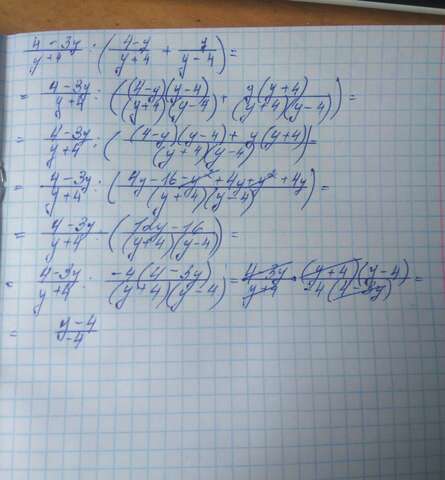 4-3y/y+4 : (4-y/y+4 + y/y-4) =
= 4-3y/y+4 : ((4-y)(y-4)/(y+4)(y-4) + y(y+4)/(y+4)(y-4)) =
= 4-3y/y+4 : ((4-y)(y-4)+y(y+4)/(y+4)(y-4)) =
= 4-3y/y+4 : (4y-16-y²+4y+y²+4y/(y+4)(y-4)) =
= 4-3y/y+4 : (12y-16/(y+4)(y-4)) =
= 4-3y/y+4 : -4(4-3y)/(y+4)(y-4) = 4-3y/y+4 · (y+4)(y-4)/-4(4-3y) =
= y-4/-4